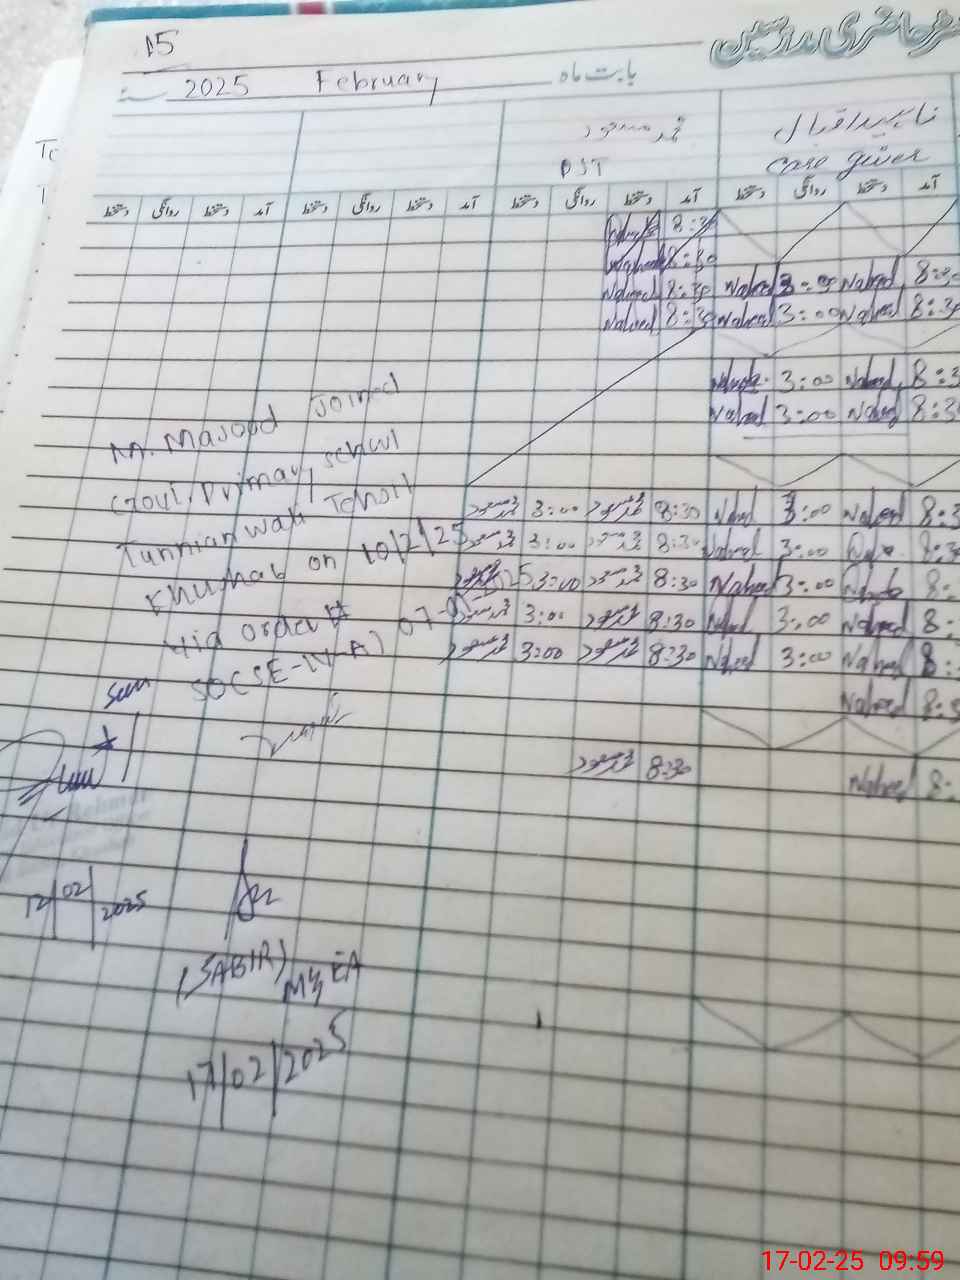 15
رجسٹر حاضری مدرسین
2025 February بابت ماہ
محمد مسعود ناہید اقبال
PST Care giver
دستخط روانگی دستخط آمد دستخط روانگی دستخط آمد دستخط روانگی دستخط آمد دستخط روانگی دستخط آمد
8:30
Naheed 8:30
Naheed 8:30 Naheed 3:00 Naheed 8:30
Naheed 8:30 Naheed 3:00 Naheed 8:30
3:00 Naheed 8:3
Naheed 3:00 Naheed 8:30
محمد مسعود 3:00 محمد مسعود 8:30 Naheed 3:00 Naheed 8:3
محمد مسعود 3:00 محمد مسعود 8:30 Naheed 3:00 8:30
3:00 محمد مسعود 8:30 Naheed 3:00 8:
محمد مسعود 3:00 محمد مسعود 8:30 3:00 Naheed 8:
محمد مسعود 3:00 محمد مسعود 8:30 Naheed 3:00 Naheed 8:
Naheed 8:3
محمد مسعود 8:30 Naheed 8:
M. Masood Joined
Govt. Primary school
Tehsil
Khushab on 10/2/25
via order #
SO(SE-IV-A) 07-
12/02/2025
(SABIR)
MEA
17/02/2025
17-02-25 09:59